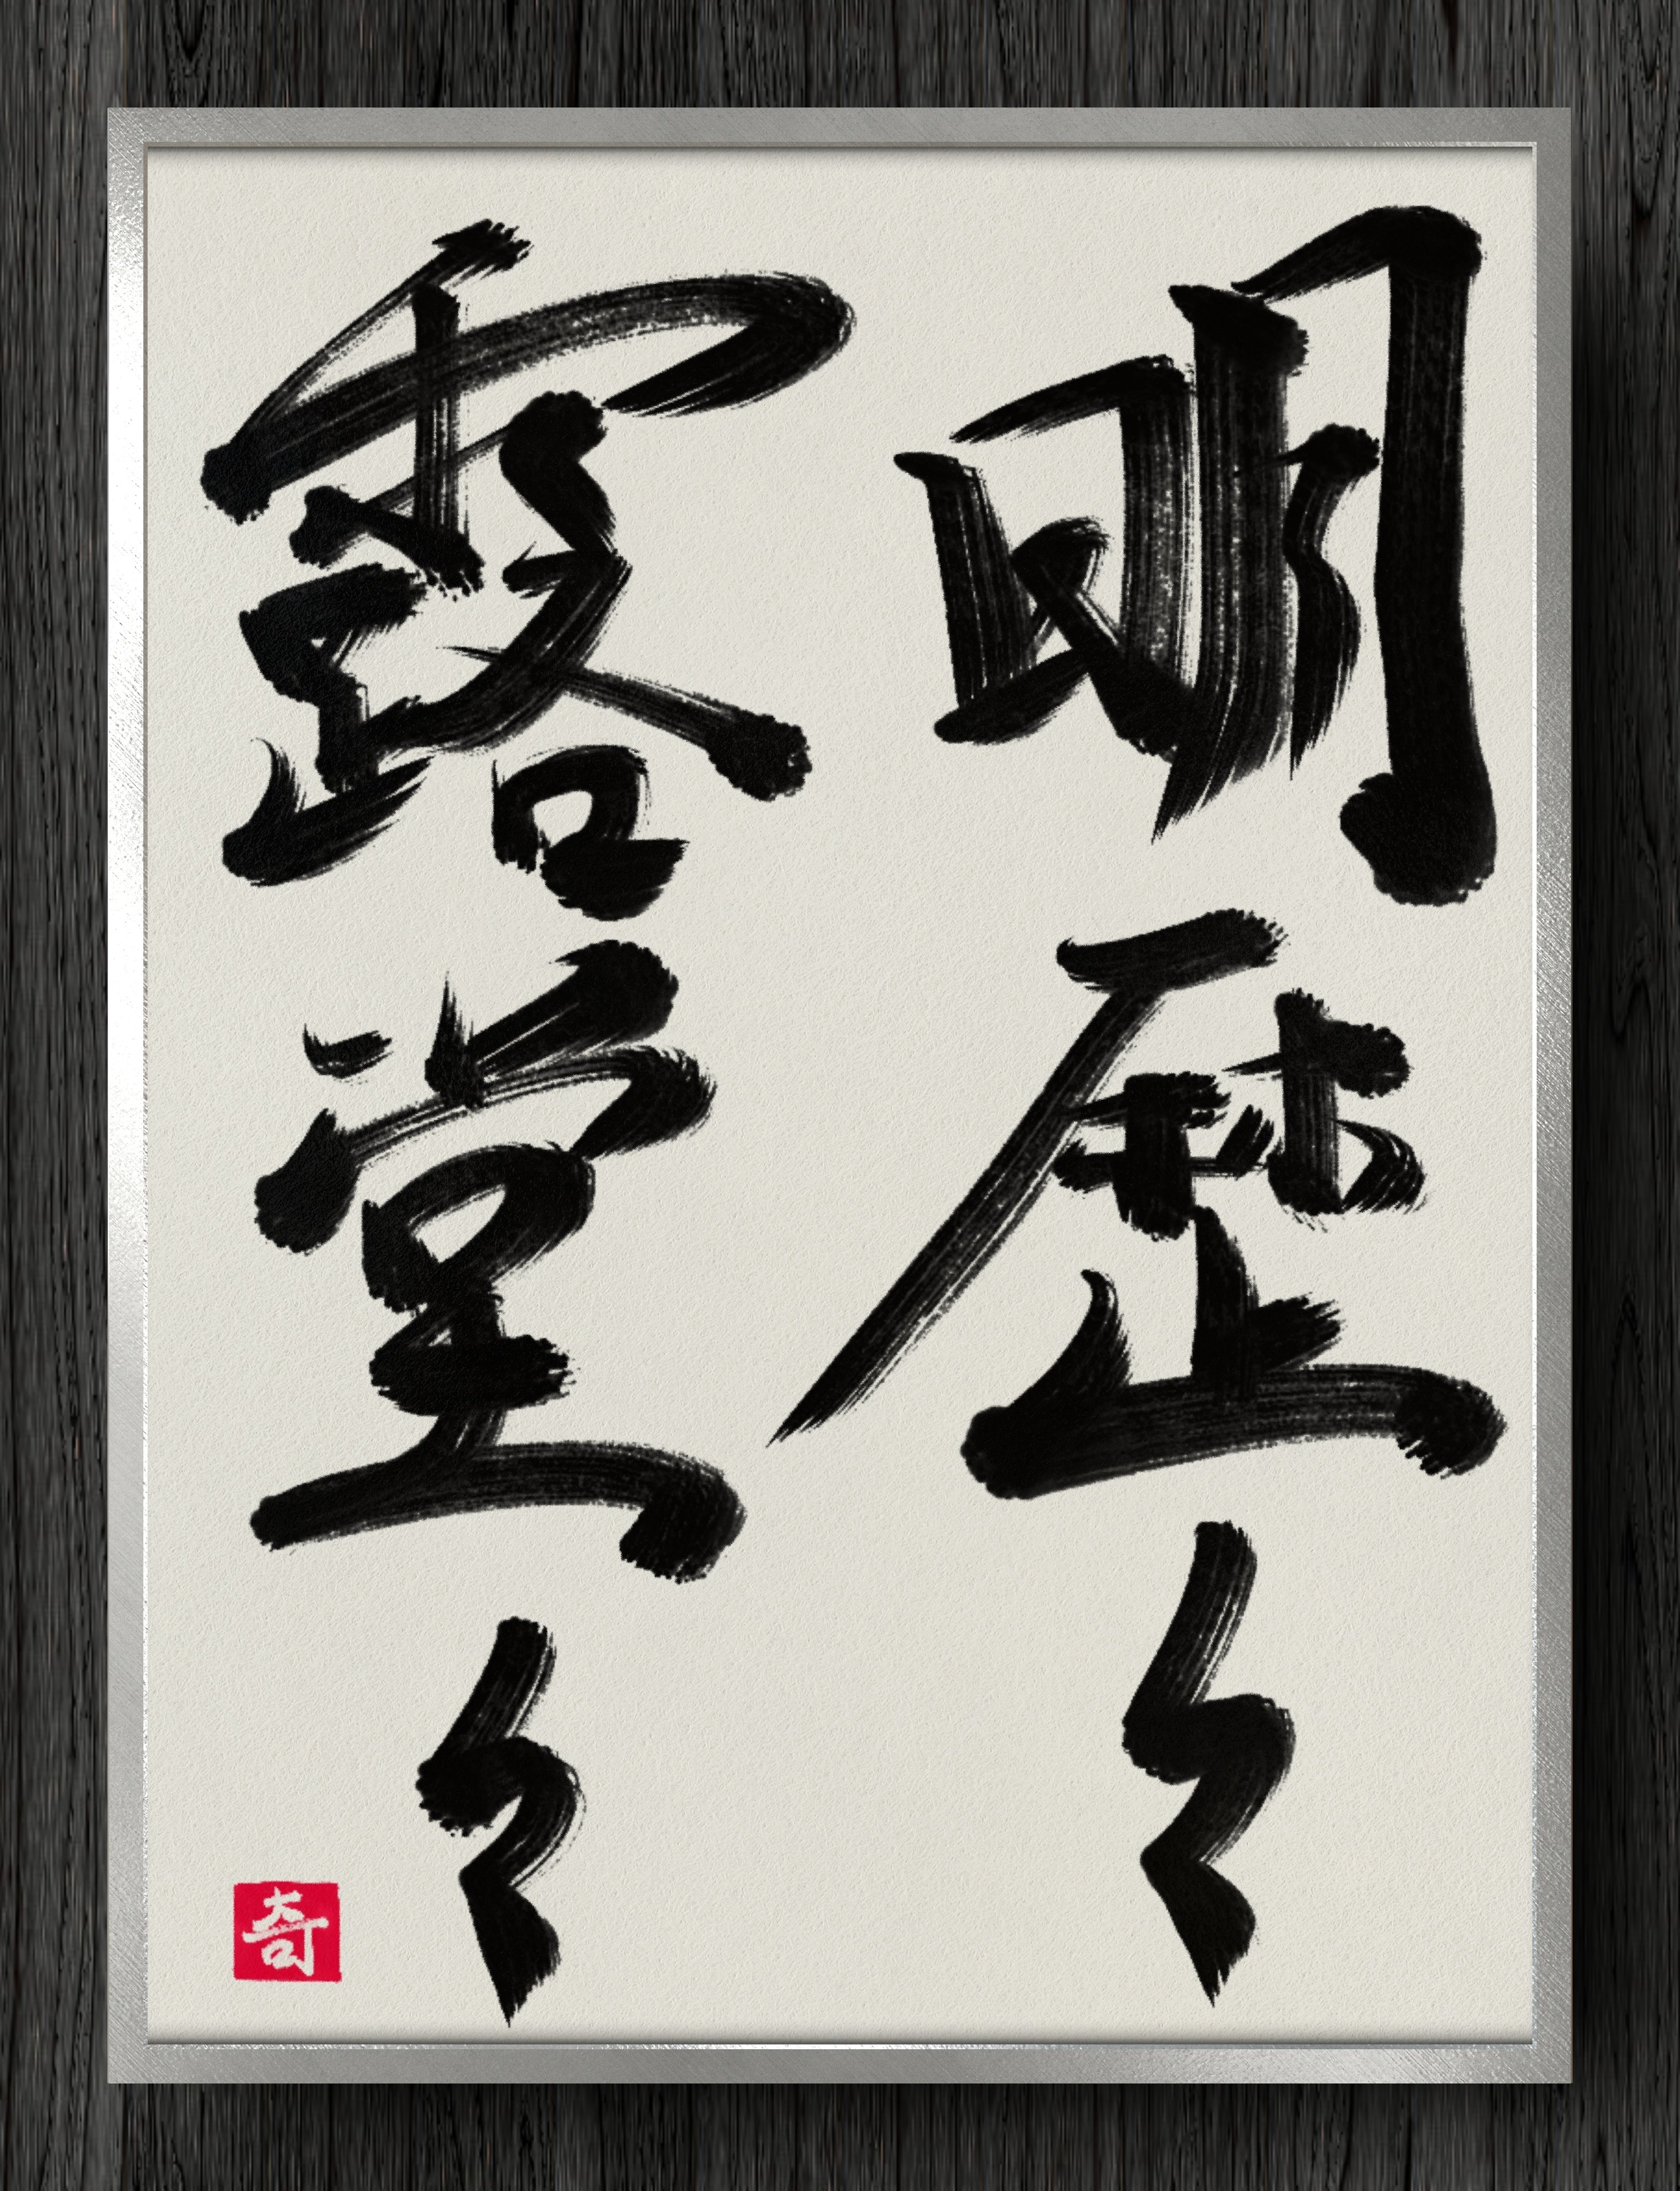 明歴々
露堂々
奇